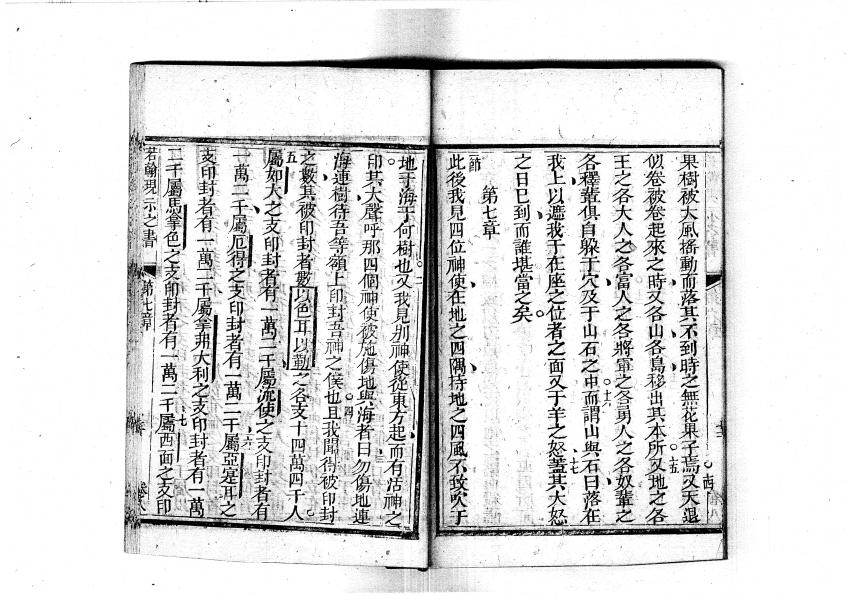 果樹被大風搖動而落其不到時之無花果子焉又天退
似卷被卷起來之時又各山各島移出其本所又地之各
王之各大人之各富人之各將軍之各勇人之各奴輩之
各釋輩俱自躲于穴及于山石之中而謂山與石曰落在
我上以遮我于在座之位者之面又于羊之怒蓋其大怒
之日已到而誰堪當之矣
第七章
節
此後我見四位神使在地之四隅持地之四風不致吹于
地于海于何樹也又我見別神使從東方起而有活神之
印其大聲呼那四個神使被施傷地與海者曰勿傷地連
海連樹待吾等額上印封吾神之僕也且我聞得被印封
之數其被印封者數以色耳以勒之各支十四萬四千人
五
屬如大之支印封者有一萬二千屬流使之支印封者有
一萬二千屬厄得之支印封者有一萬二千屬亞寔耳之
支印封者有一萬二千屬拿弗大利之支印封者有一萬
二千屬馬拿色之支印封者有一萬二千屬西面之支印
若翰現示之書 第七章 卷八